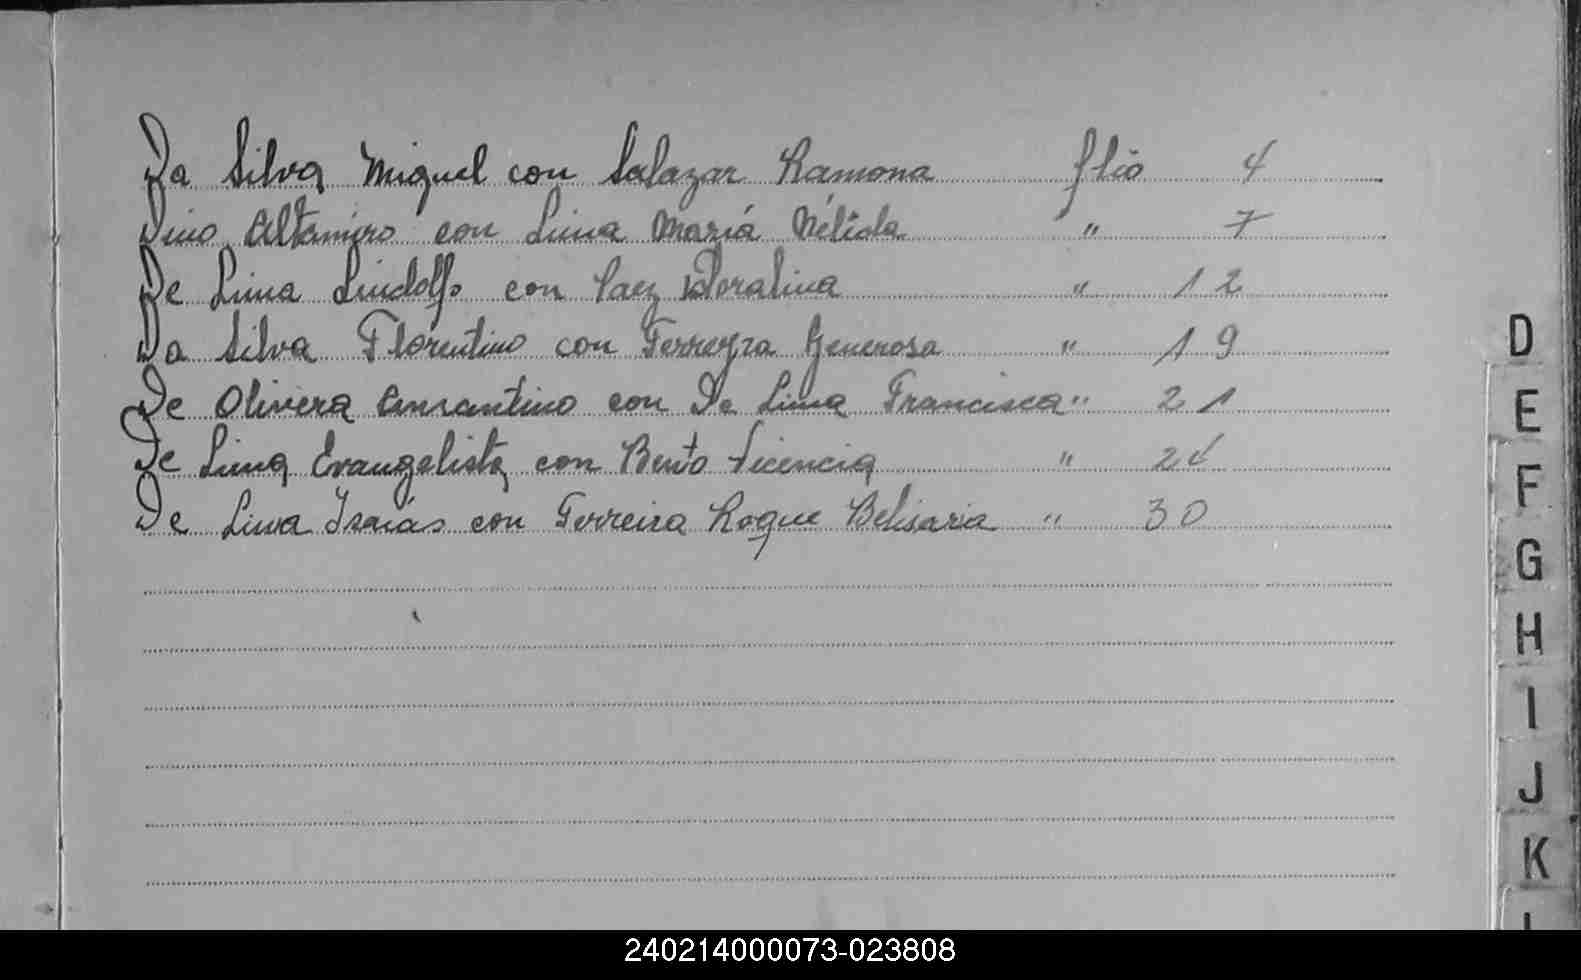 Da Silva Miguel con Salazar Ramona flio 4
Dino Altamiro con Lima María Nélida " 7
De Lima Lindolfo con Paez Doralina " 12
Da Silva Florentino con Ferreyra Generosa " 19
De Olivera Amrantino con De Lima Francisca " 21
De Lima Evangelista con Bento Vicencia " 24
De Lima Isaías con Ferreira Roque Belisaria " 30
D
E
F
G
H
I
J
K
240214000073-023808